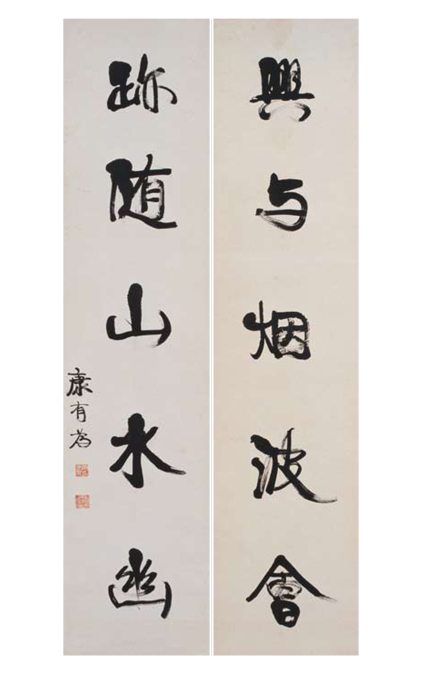 興与烟波會
跡随山水幽
康有為